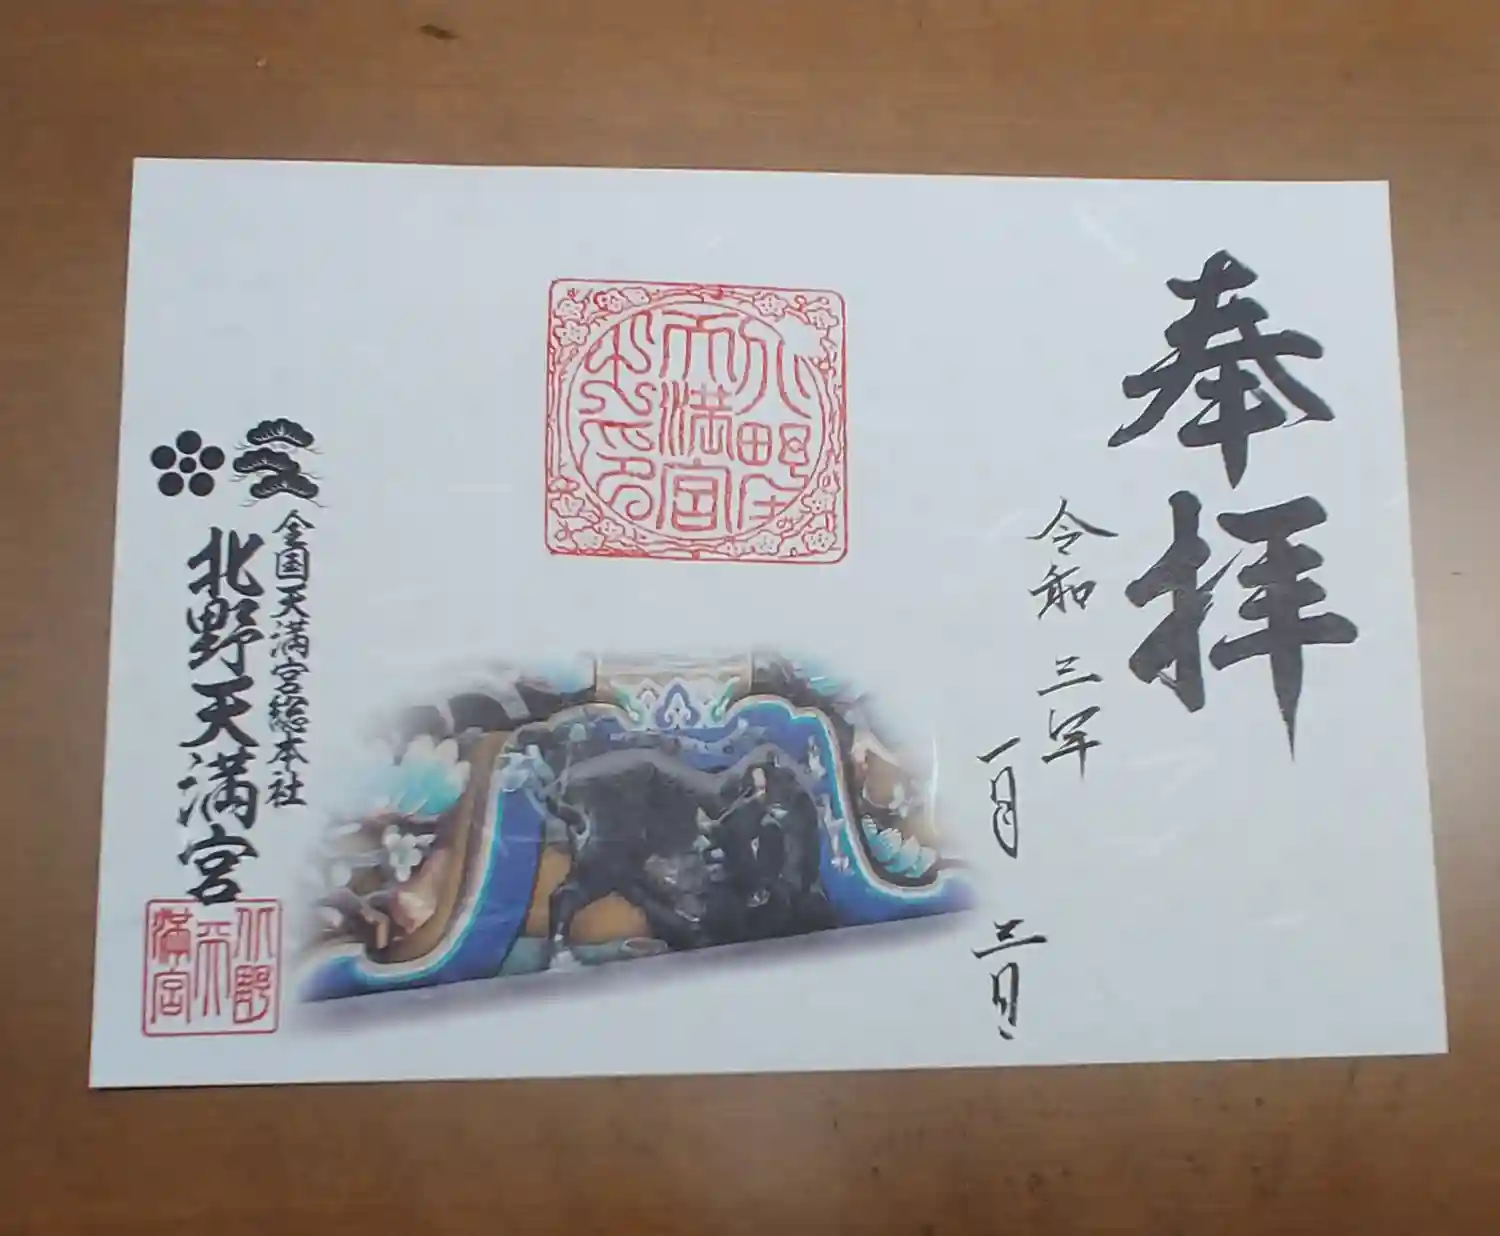 奉拝
令和三年
一月二日
北野天満宮
全国天満宮総本社
北野天満宮
北野天満宮